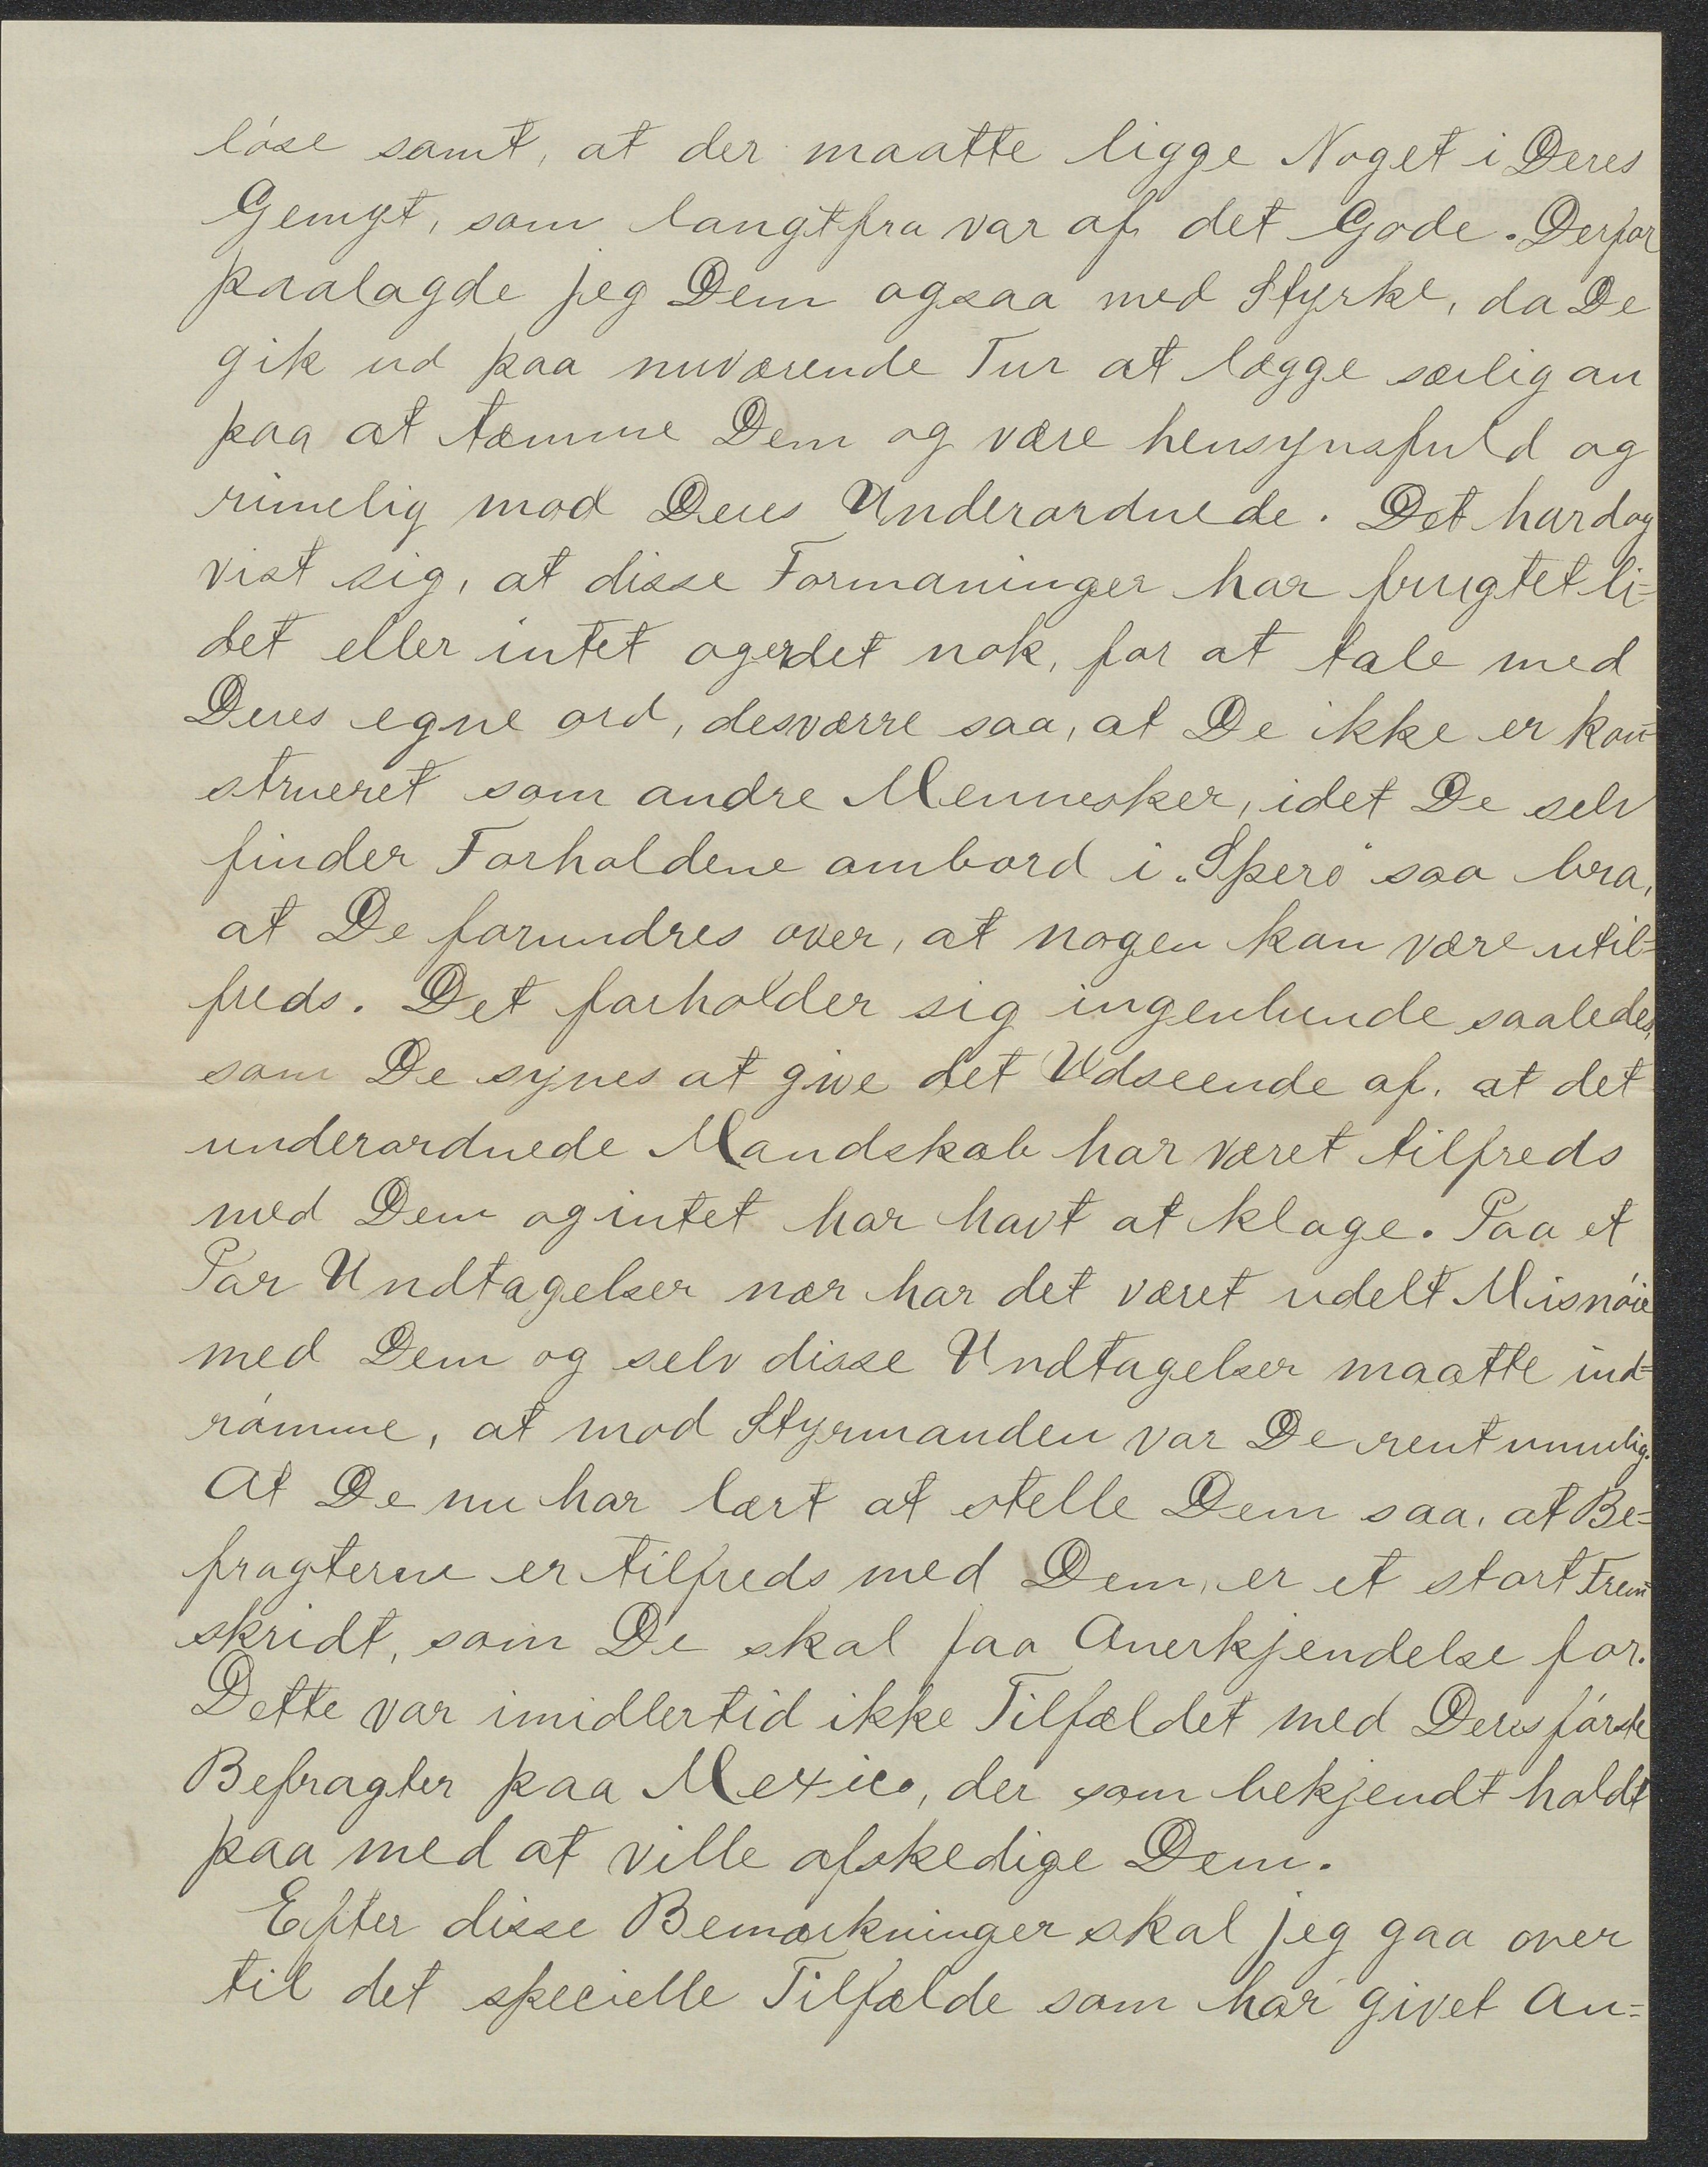 løse samt, at der maatte ligge Noget i Deres
Gemyt, som langtfra var af det Gode. Derfor
paalagde jeg Dem ogsaa med Styrke, da De
gik ud paa nuværende Tur at lægge særlig an
paa at tæmme Dem og være hensynsfuld og
rimelig mod Deres Underordnede. Det har dog
vist sig, at disse Formaninger har frugtet li=
det eller intet og er det nok, for at tale med
Deres egne ord, desværre saa, at De ikke er kon=
strueret som andre Mennesker, idet De selv
finder Forholdene ombord i „Spero" saa bra,
at De forundres over, at nogen kan være util=
freds. Det forholder sig ingenlunde saaledes,
som De synes at give det Udseende af, at det
underordnede Mandskab har været tilfreds
med Dem og intet har havt at klage. Paa et
Par Undtagelser nær har det været udelt Misnøie
med Dem og selv disse Undtagelser maatte ind=
rømme, at mod Styrmanden var De rent umulig.
At De nu har lært at stelle Dem saa, at Be=
fragterne er tilfreds med Dem, er et stort Frem=
skridt, som De skal faa Anerkjendelse for.
Dette var imidlertid ikke Tilfældet med Deres første
Befragter paa Mexico, der som bekjendt holdt
paa med at ville afskedige Dem.
Efter disse Bemærkninger skal jeg gaa over
til det specielle Tilfælde som har givet An=